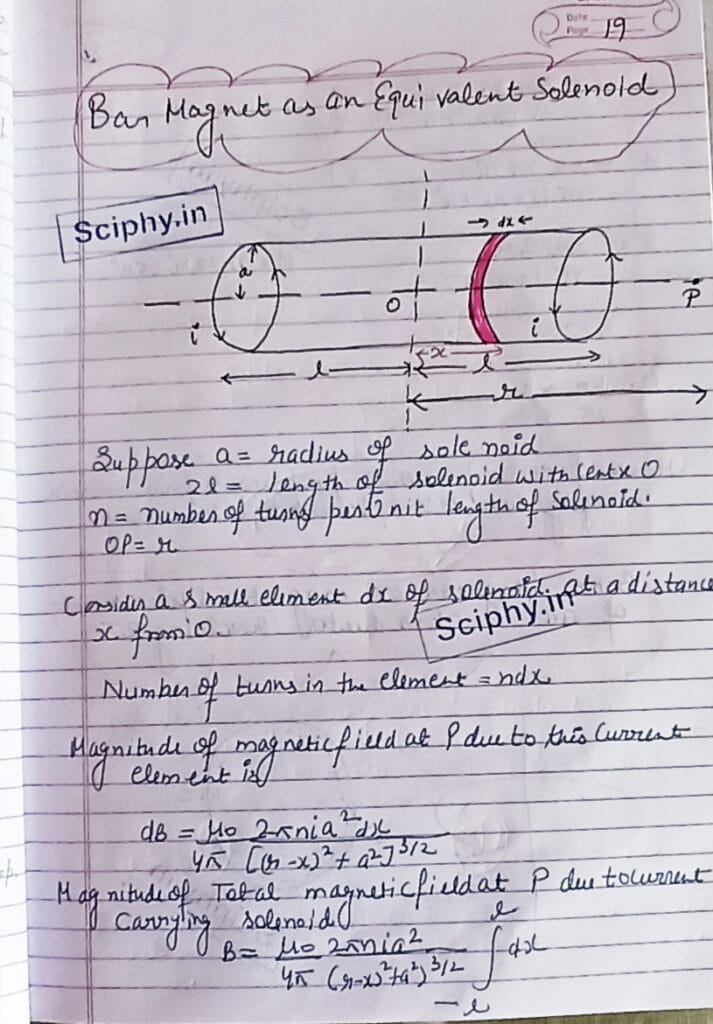 Date
Page 19
Bar Magnet as an Equivalent Solenoid
Sciphy.in
→ dx ←
a
O
P
i
i
x
l
l
r
Suppose a = radius of solenoid
2l = length of solenoid with centre O
n = number of turns per unit length of solenoid.
OP = r
Consider a small element dx of solenoid at a distance
x from O.
Sciphy.in
Number of turns in the element = ndx
Magnitude of magnetic field at P due to this current
element is
dB = μ0/4π 2πnia²dx/[(r-x)²+a²]^3/2
Magnitude of Total magnetic field at P due to current
carrying solenoid
B = μ0/4π 2πnia²/((r-x)²+a²)^3/2 ∫_{-l}^{l} dx